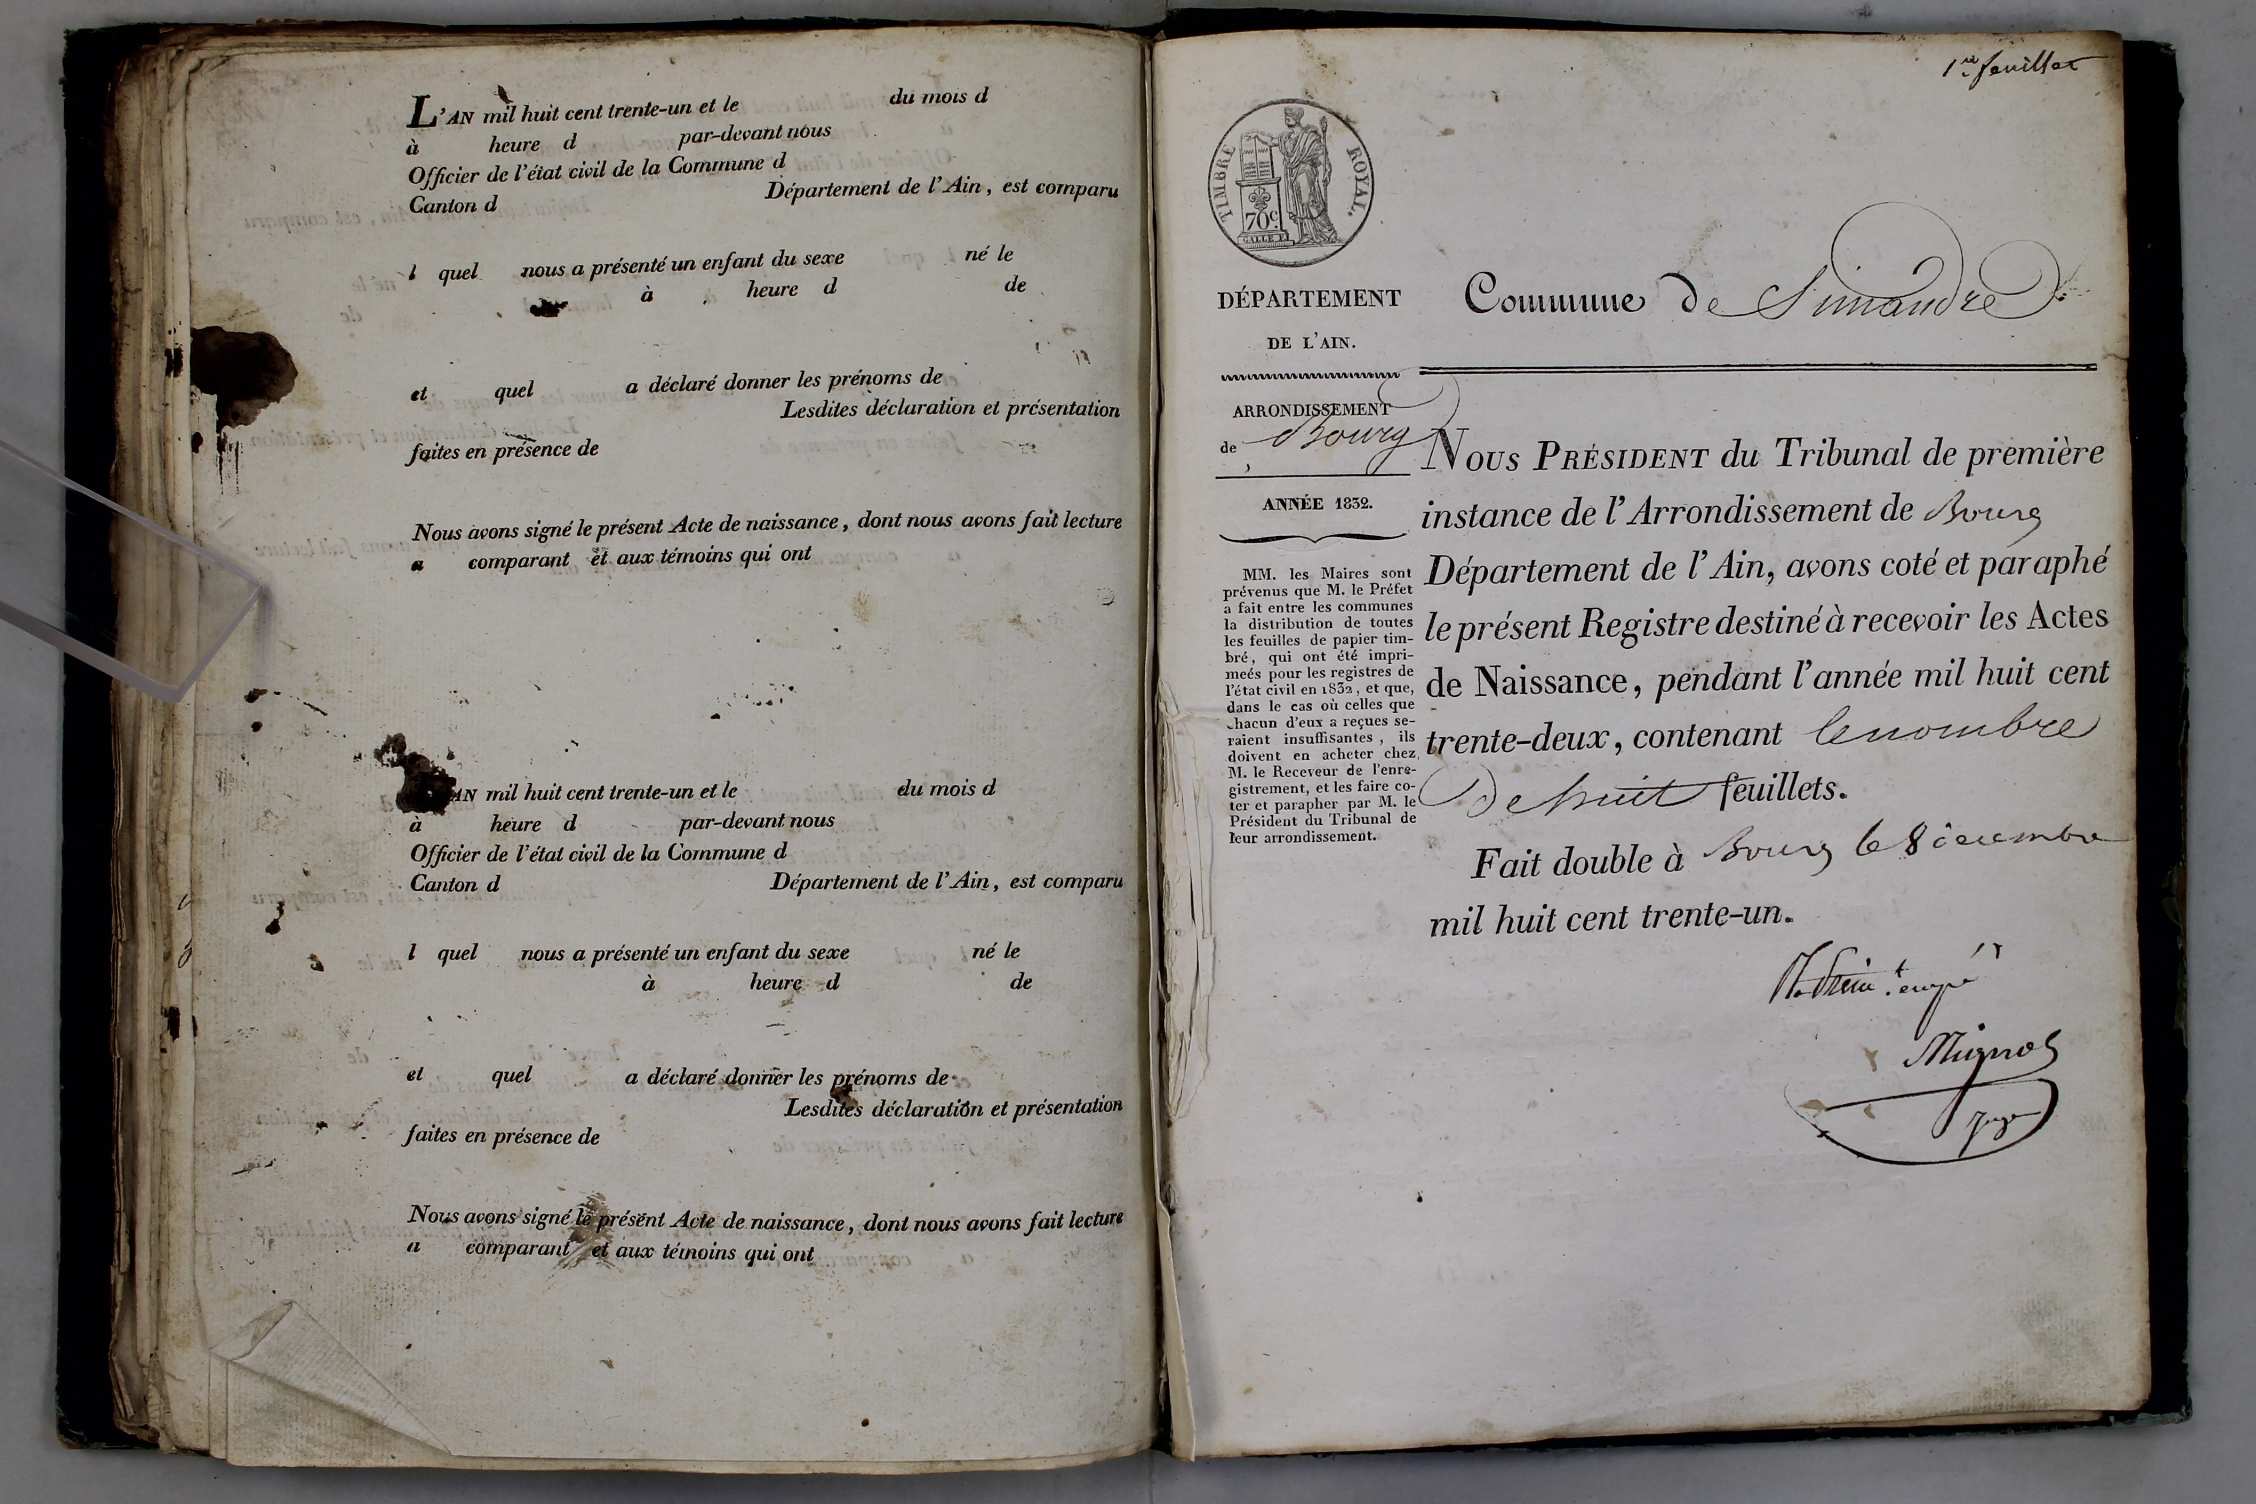 L'AN mil huit cent trente-un et le du mois d
à heure d par-devant nous
Officier de l'état civil de la Commune d
Canton d Département de l'Ain, est comparu
l quel nous a présenté un enfant du sexe né le
à heure d de
et quel a déclaré donner les prénoms de
Lesdites déclaration et présentation
faites en présence de
Nous avons signé le présent Acte de naissance, dont nous avons fait lecture
a comparant et aux témoins qui ont
AN mil huit cent trente-un et le du mois d
à heure d par-devant nous
Officier de l'état civil de la Commune d
Canton d Département de l'Ain, est comparu
l quel nous a présenté un enfant du sexe né le
à heure d de
et quel a déclaré donner les prénoms de
Lesdites déclaration et présentation
faites en présence de
Nous avons signé le présent Acte de naissance, dont nous avons fait lecture
a comparant et aux témoins qui ont
1er feuillet
TIMBRE ROYAL.
70c.
DÉPARTEMENT
DE L'AIN.
ARRONDISSEMENT
de Bourg
ANNÉE 1832.
MM. les Maires sont
prévenus que M. le Préfet
a fait entre les communes
la distribution de toutes
les feuilles de papier tim-
bré, qui ont été impri-
meés pour les registres de
l'état civil en 1832, et que,
dans le cas où celles que
chacun d'eux a reçues se-
raient insuffisantes, ils
doivent en acheter chez
M. le Receveur de l'enre-
gistrement, et les faire co-
ter et parapher par M. le
Président du Tribunal de
leur arrondissement.
Commune de Simandre
NOUS PRÉSIDENT du Tribunal de première
instance de l'Arrondissement de Bourg
Département de l'Ain, avons coté et paraphé
le présent Registre destiné à recevoir les Actes
de Naissance, pendant l'année mil huit cent
trente-deux, contenant le nombre
De huit feuillets.
Fait double à Bourg le 8 décembre
mil huit cent trente-un.
Mignot
Juge